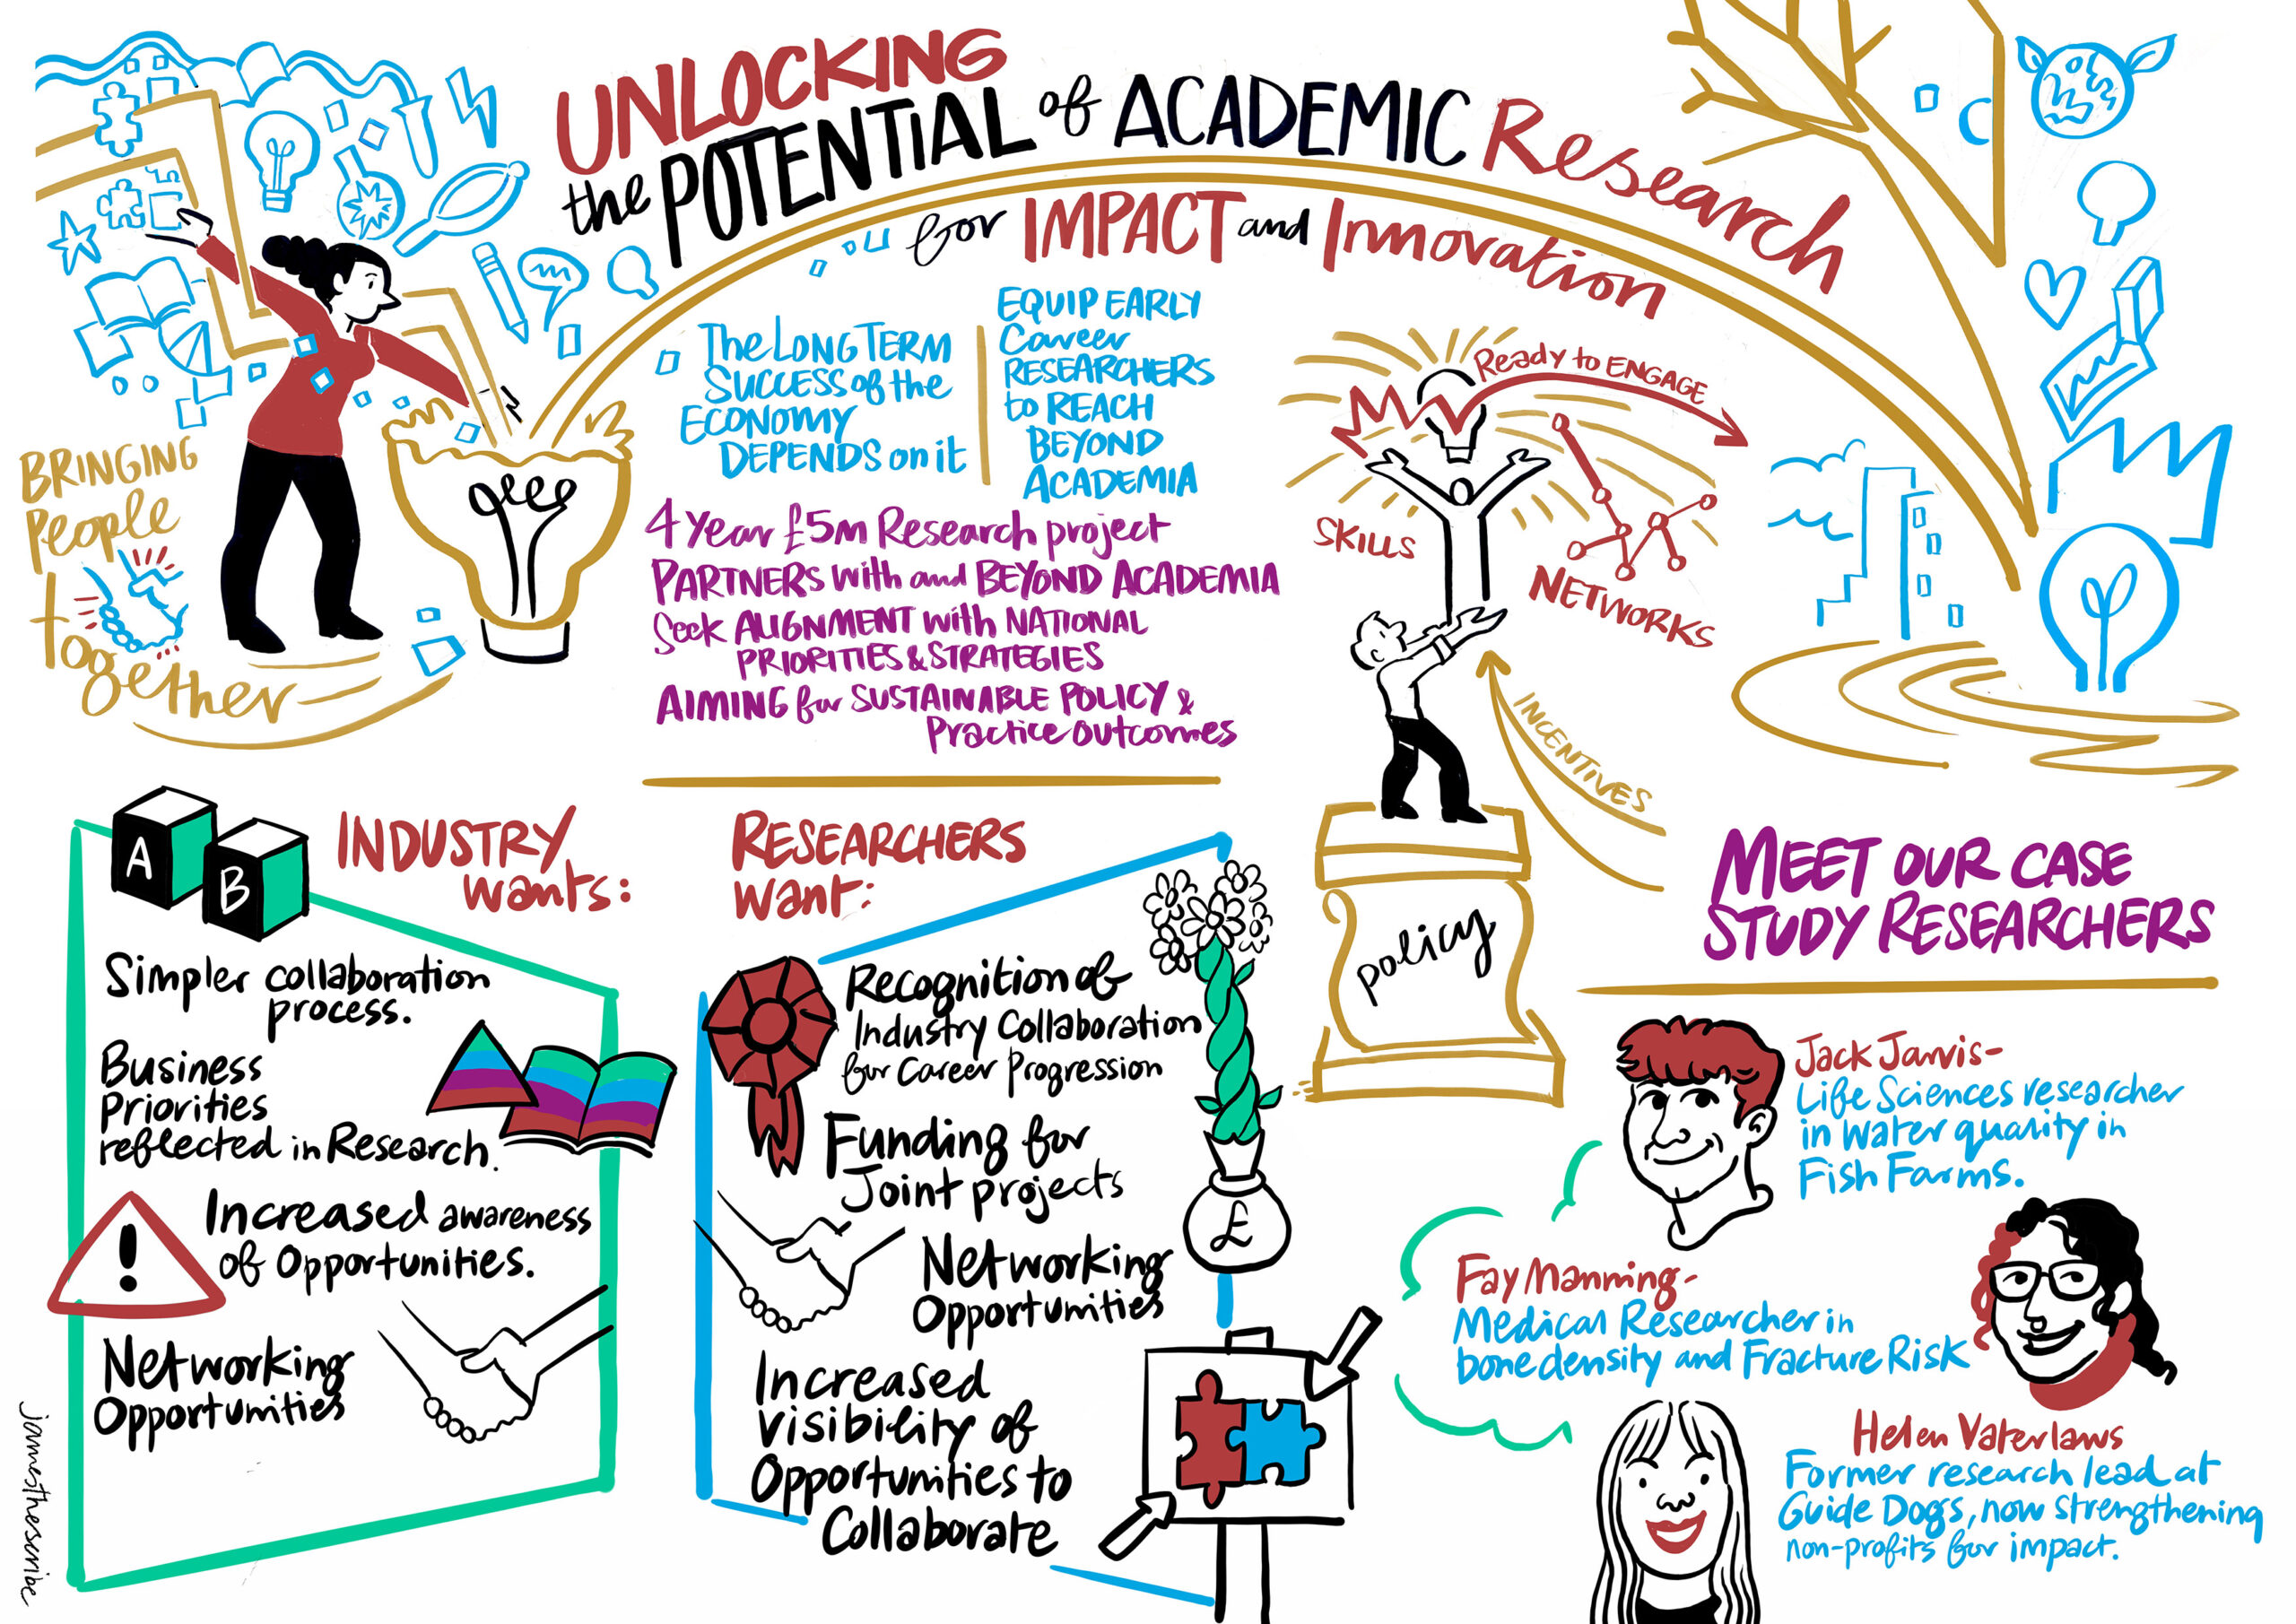 UNLOCKING
the POTENTIAL of ACADEMIC Research
for IMPACT and Innovation
BRINGING
People
together
The LONG TERM
SUCCESS of the
ECONOMY
DEPENDS on it
EQUIP EARLY
Career
RESEARCHERS
to REACH
BEYOND
ACADEMIA
4 Year £5m Research project
PARTNERS with and BEYOND ACADEMIA
Seek ALIGNMENT with NATIONAL
PRIORITIES & STRATEGIES
AIMING for SUSTAINABLE POLICY &
Practice outcomes
Ready to ENGAGE
SKILLS
NETWORKS
INCENTIVES
policy
A
B
INDUSTRY
wants:
Simpler collaboration
process.
Business
Priorities
reflected in Research.
!
Increased awareness
of Opportunities.
Networking
Opportunities
RESEARCHERS
want:
Recognition of
Industry Collaboration
for Career Progression
Funding for
Joint projects
£
Networking
Opportunities
Increased
visibility of
Opportunities to
Collaborate
MEET OUR CASE
STUDY RESEARCHERS
Jack Jarvis-
Life Sciences researcher
in water quality in
Fish Farms.
Fay Manning-
Medical Researcher in
bone density and Fracture Risk
Helen Vaterlaws
Former research lead at
Guide Dogs, now strengthening
non-profits for impact.
jamesthescribe